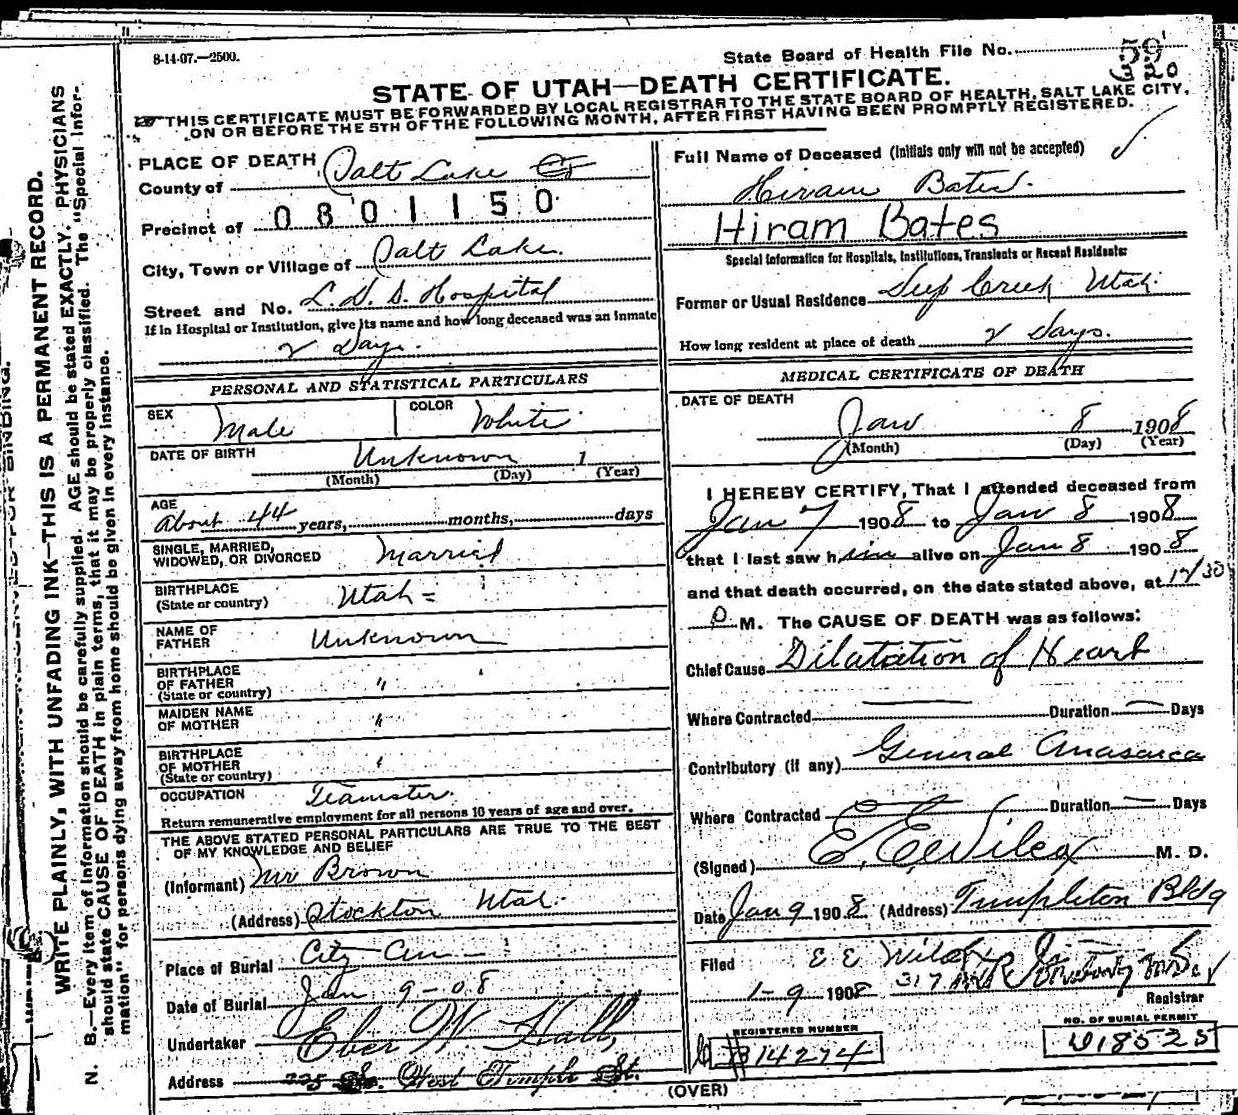 8-14-07.—2500.
State Board of Health File No. 59
320
STATE OF UTAH—DEATH CERTIFICATE.
THIS CERTIFICATE MUST BE FORWARDED BY LOCAL REGISTRAR TO THE STATE BOARD OF HEALTH, SALT LAKE CITY,
ON OR BEFORE THE 5TH OF THE FOLLOWING MONTH, AFTER FIRST HAVING BEEN PROMPTLY REGISTERED.
PLACE OF DEATH
County of Salt Lake
Precinct of 0801150
City, Town or Village of Salt Lake.
Street and No. L.D.S. Hospital
If in Hospital or Institution, give its name and how long deceased was an inmate
2 Days.
PERSONAL AND STATISTICAL PARTICULARS
SEX Male COLOR White
DATE OF BIRTH Unknown 1
(Month) (Day) (Year)
AGE
About 44 years, months, days
SINGLE, MARRIED,
WIDOWED, OR DIVORCED Married
BIRTHPLACE
(State or country) Utah =
NAME OF
FATHER Unknown
BIRTHPLACE
OF FATHER
(State or country) "
MAIDEN NAME
OF MOTHER "
BIRTHPLACE
OF MOTHER
(State or country) "
OCCUPATION Teamster.
Return remunerative employment for all persons 10 years of age and over.
THE ABOVE STATED PERSONAL PARTICULARS ARE TRUE TO THE BEST
OF MY KNOWLEDGE AND BELIEF
(Informant) Mr Brown
(Address) Stockton Utah.
Place of Burial City Cem
Date of Burial Jan 9-08
Undertaker Eber W Hall,
Address West Temple St.
Full Name of Deceased (Initials only will not be accepted)
Hiram Bates.
Hiram Bates
Special Information for Hospitals, Institutions, Transients or Recent Residents:
Former or Usual Residence Deep Creek Utah.
How long resident at place of death 2 Days.
MEDICAL CERTIFICATE OF DEATH
DATE OF DEATH
Jan 8 1908
(Month) (Day) (Year)
I HEREBY CERTIFY, That I attended deceased from
Jan 7 1908 to Jan 8 1908
that I last saw him alive on Jan 8 1908
and that death occurred, on the date stated above, at 12/30
P M. The CAUSE OF DEATH was as follows:
Chief Cause Dilatation of Heart
Where Contracted — Duration — Days
Contributory (if any) General Anasarca
Where Contracted — Duration — Days
(Signed) E. E. Wilcox M. D.
Date Jan 9 1908 (Address) Templeton Bldg
Filed E E Wilcox
1-9 1908 317
Registrar
REGISTERED NUMBER
B14274
NO. OF BURIAL PERMIT
W18525
(OVER)
WRITE PLAINLY, WITH UNFADING INK—THIS IS A PERMANENT RECORD.
N. B.—Every item of information should be carefully supplied. AGE should be stated EXACTLY. PHYSICIANS
should state CAUSE OF DEATH in plain terms, that it may be properly classified. The "Special Infor-
mation" for persons dying away from home should be given in every instance.